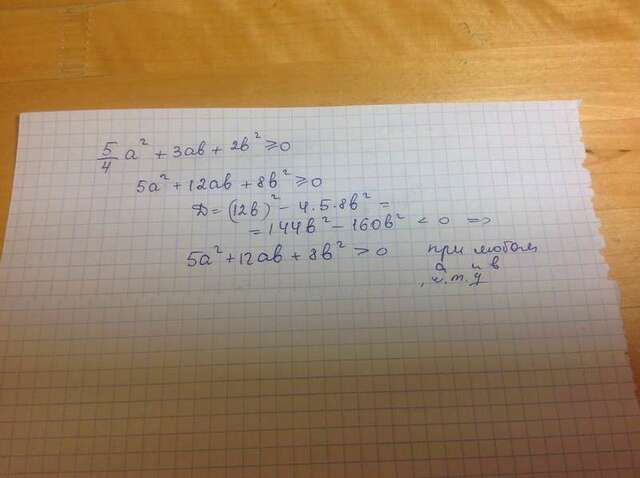 5/4 a² + 3ab + 2b² ⩾ 0
5a² + 12ab + 8b² ⩾ 0
D = (12b)² - 4·5·8b² =
= 144b² - 160b² < 0 =>
5a² + 12ab + 8b² > 0 при любом
a и b
ч.т.д